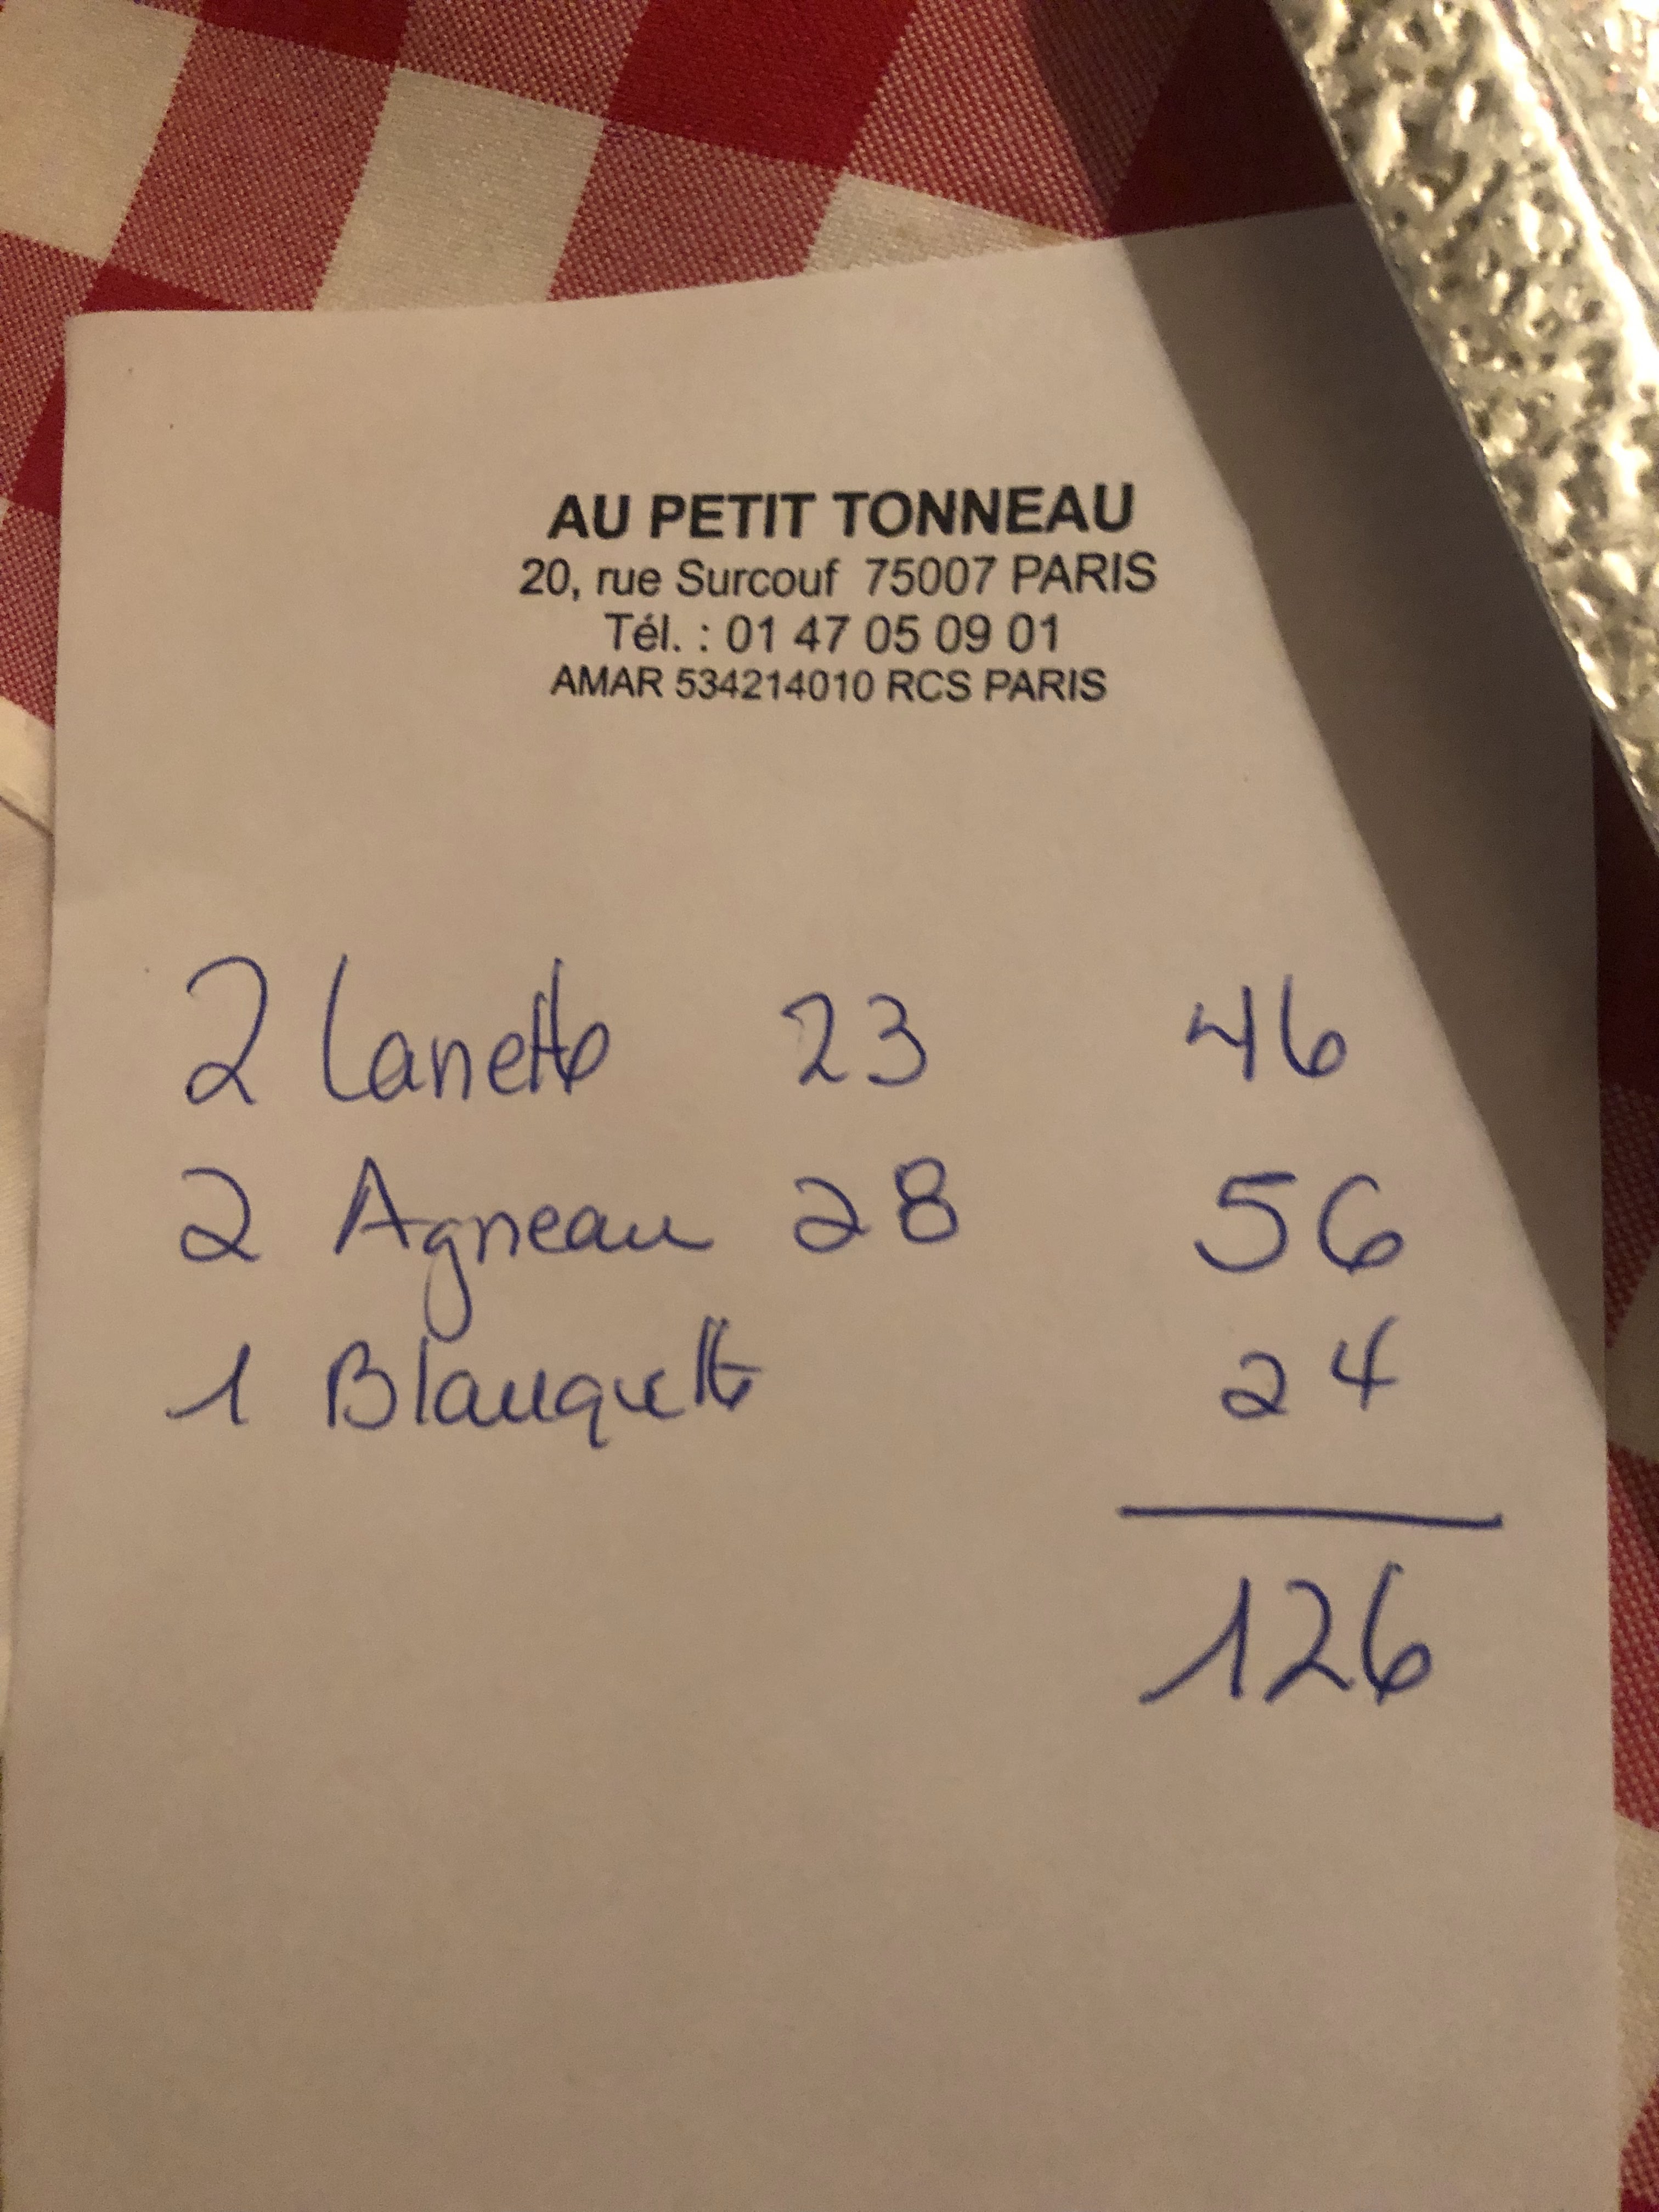 AU PETIT TONNEAU
20, rue Surcouf 75007 PARIS
Tél. : 01 47 05 09 01
AMAR 534214010 RCS PARIS
2 Canette 23 46
2 Agneau 28 56
1 Blanquette 24
126